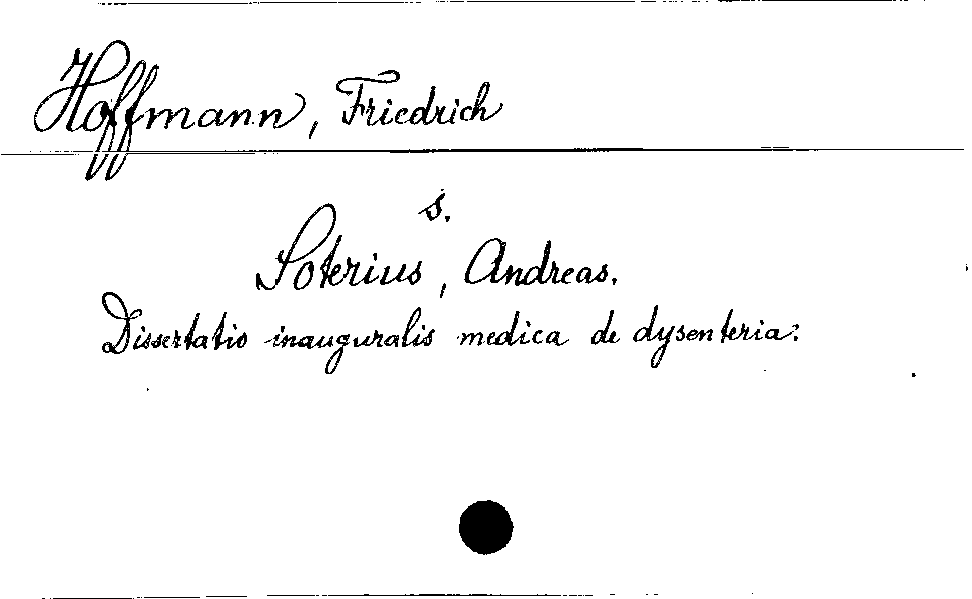 Hoffmann, Friedrich
s.
Soterius, Andreas.
Dissertatio inauguralis medica de dysenteria: